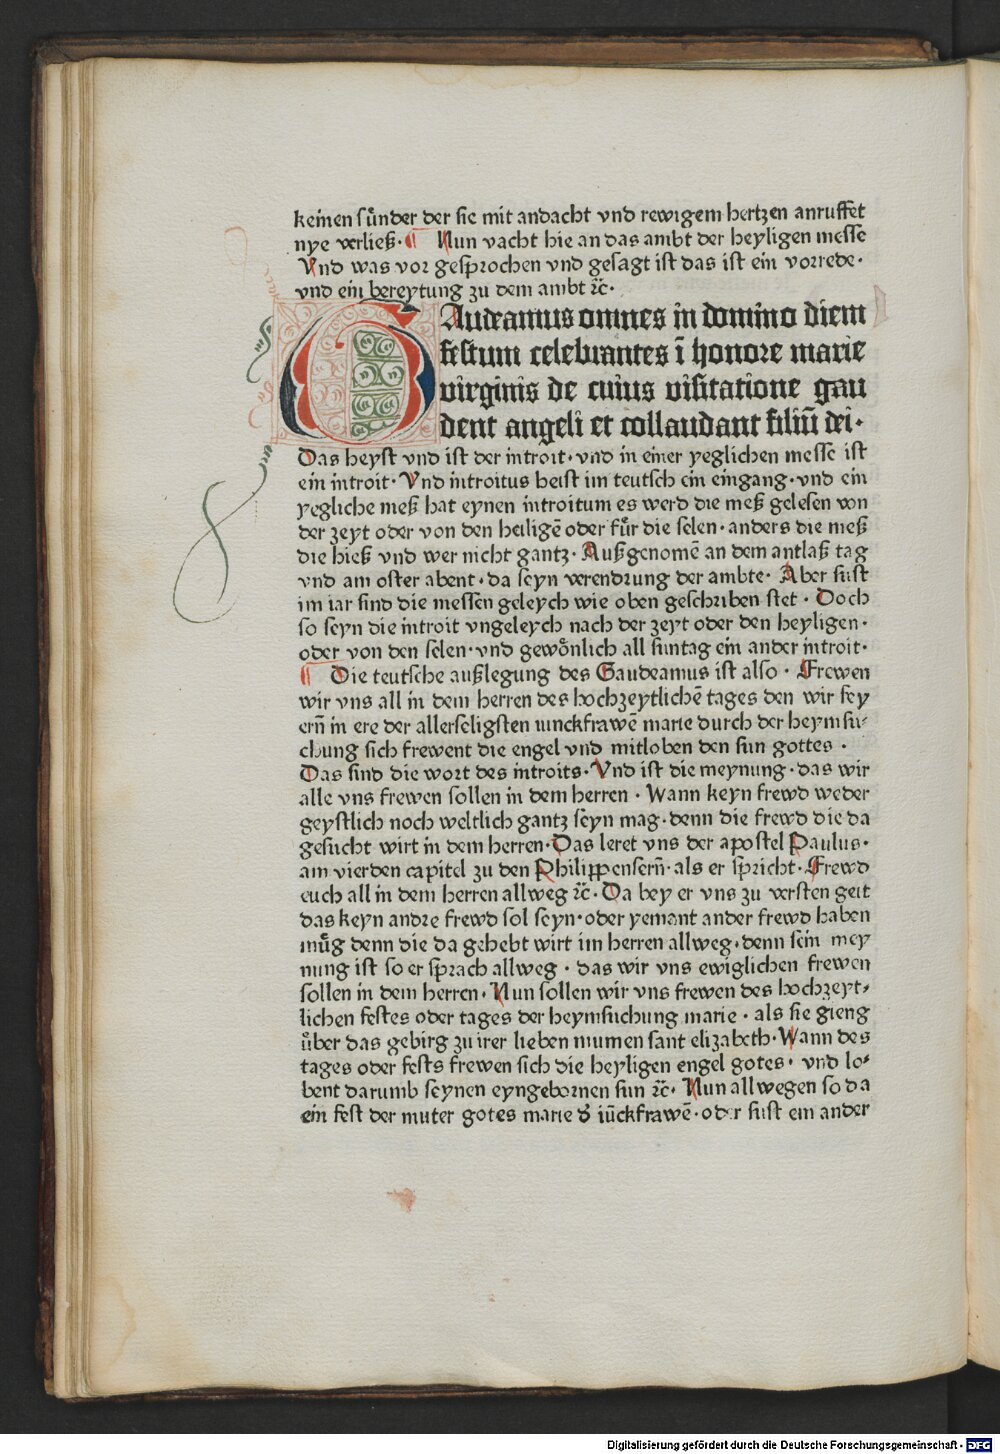 keinen sůnder der sie mit andacht vnd rewigem hertzen anruffet
nye verließ· ¶ Nun vacht hie an das ambt der heyligen messe
Vnd was vor gesprochen vnd gesagt ist das ist ein vorrede·
vnd ein bereytung zu dem ambt ꝛc̄·
GAudeamus omnes in domino diem
festum celebrantes ī honore marie
virginis de cuius visitatione gau
dent angeli et collaudant filiū dei·
Das heyst vnd ist der introit· vnd in einer yeglichen messe ist
ein introit· Vnd introitus heist im teutsch ein eingang· vnd ein
yegliche meß hat eynen introitum es werd die meß gelesen von
der zeyt oder von den heiligē oder fůr die selen· anders die meß
die hieß vnd wer nicht gantz· Außgenomē an dem antlaß tag
vnd am oster abent· da seyn verendrung der ambte· Aber sust
im iar sind die messen geleych wie oben geschriben stet· Doch
so seyn die introit vngeleych nach der zeyt oder den heyligen·
oder von den selen· vnd gewönlich all suntag ein ander introit·
¶ Die teutsche außlegung des Gaudeamus ist also· Frewen
wir vns all in dem herren des hochzeytlichē tages den wir fey
ern̄ in ere der allerseligsten iunckfrawē marie durch der heymsu⸗
chung sich frewent die engel vnd mitloben den sun gottes·
Das sind die wort des introits· Vnd ist die meynung· das wir
alle vns frewen sollen in dem herren· Wann keyn frewd weder
geystlich noch weltlich gantz seyn mag· denn die frewd die da
gesucht wirt in dem herren· Das leret vns der apostel Paulus·
am vierden capitel zu den Philippensern̄· als er spricht· Frewd
euch all in dem herren allweg ꝛc̄· Da bey er vns zu versten geit
das keyn andre frewd sol seyn· oder yemant ander frewd haben
můg denn die da gehebt wirt im herren allweg· denn sein mey
nung ist so er sprach allweg· das wir vns ewiglichen frewen
sollen in dem herren· Nun sollen wir vns frewen des hochzeyt⸗
lichen festes oder tages der heymsuchung marie· als sie gieng
ůber das gebirg zu irer lieben mumen sant elizabeth· Wann des
tages oder fests frewen sich die heyligen engel gotes· vnd lo⸗
bent darumb seynen eyngebornen sun ꝛc̄· Nun allwegen so da
ein fest der muter gotes marie d̄ iūckfrawē· oder sust ein ander
Digitalisierung gefördert durch die Deutsche Forschungsgemeinschaft · DFG